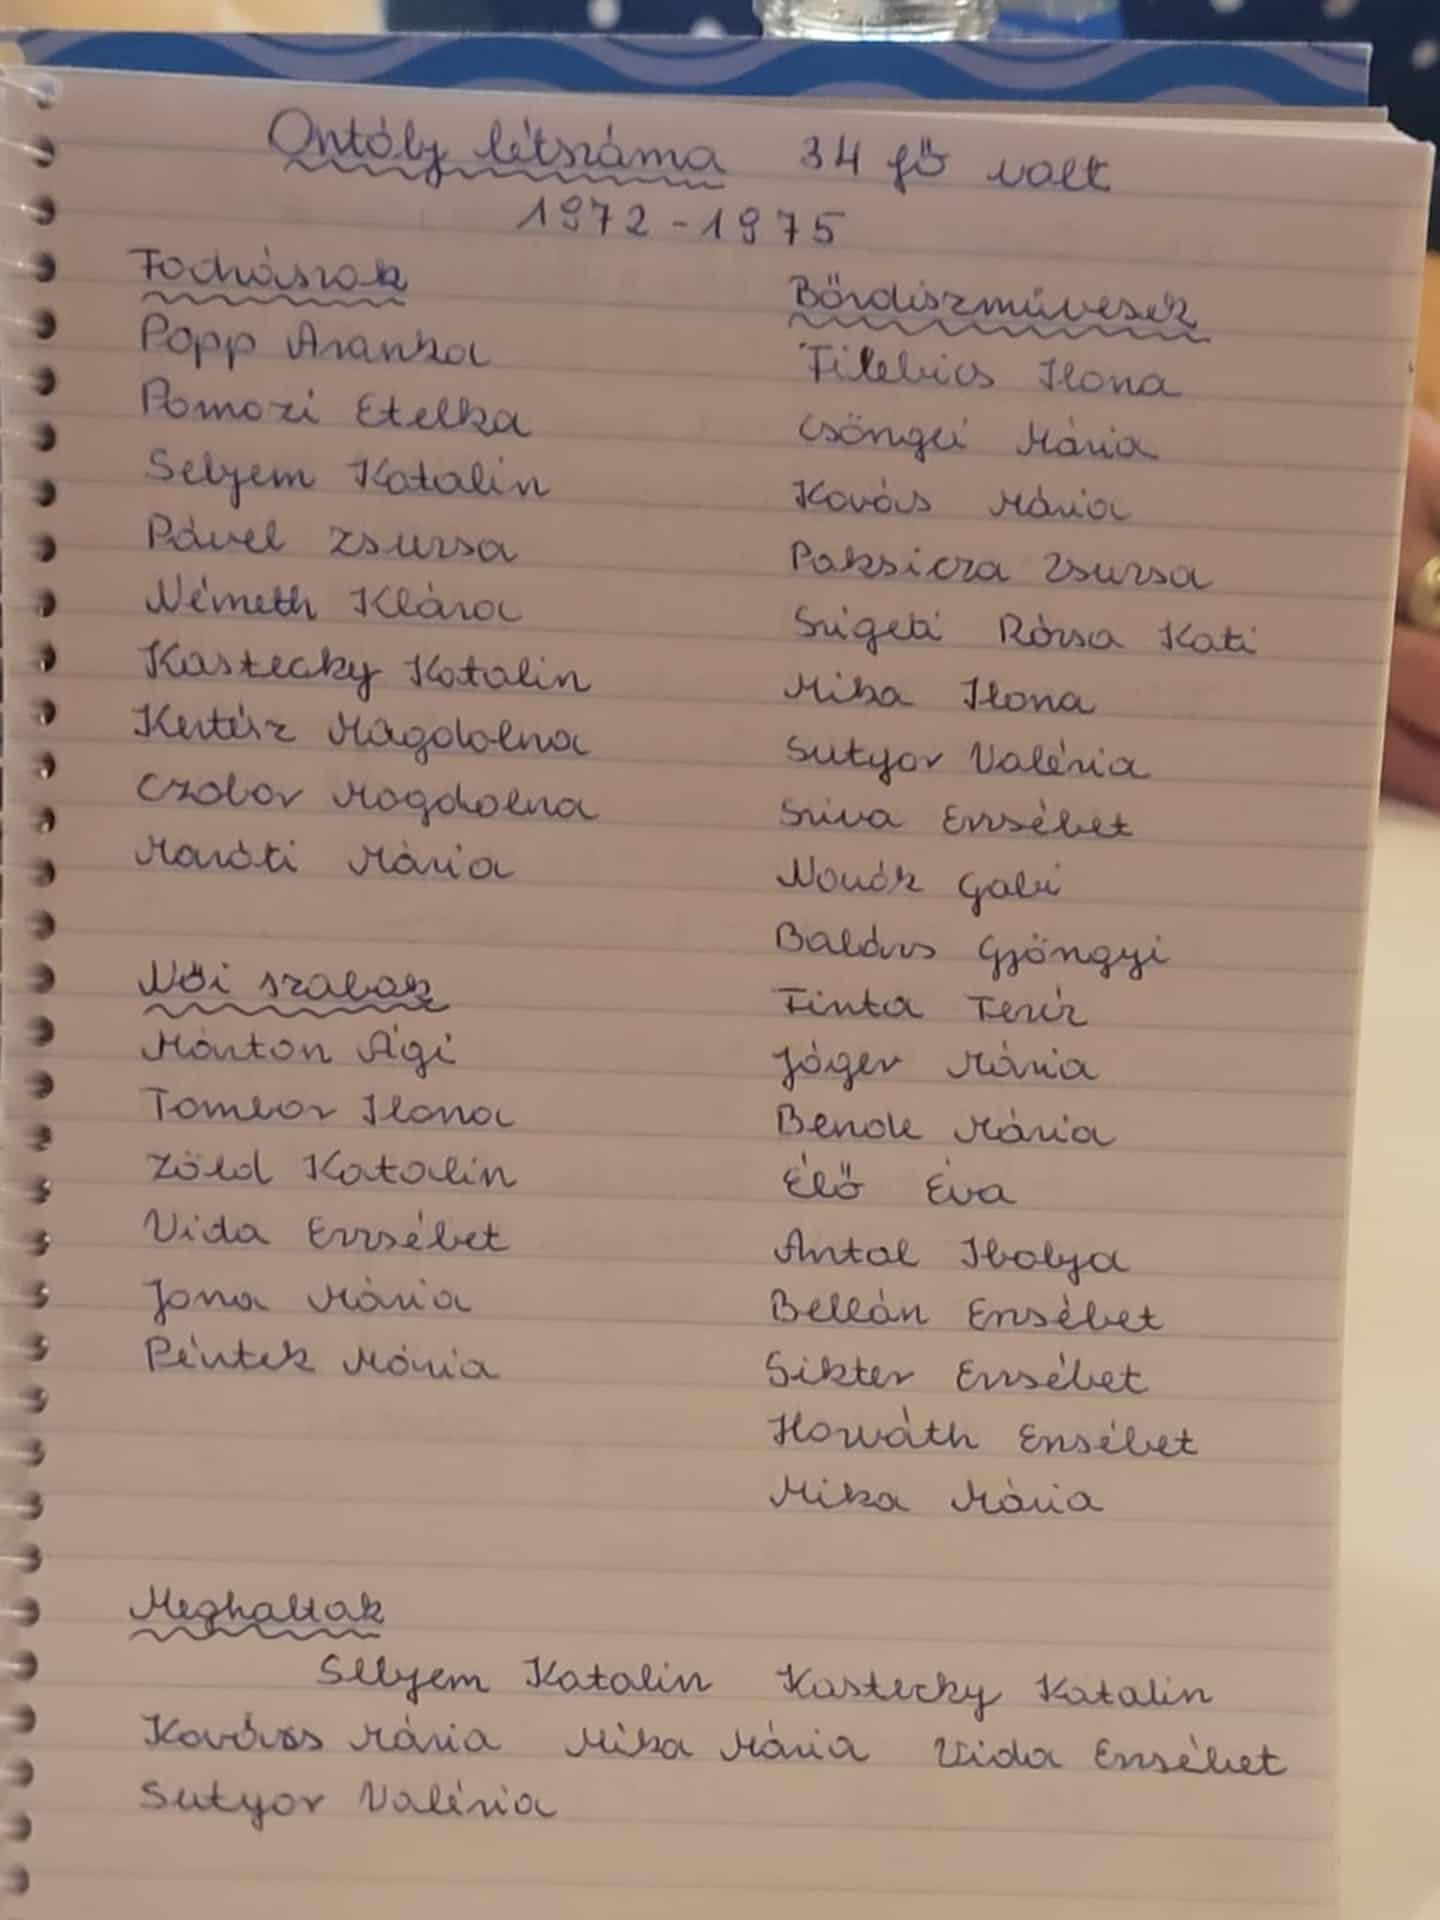 Osztály létszáma 34 fő volt
1972-1975
Fodrászok
Popp Aranka
Pomozi Etelka
Selyem Katalin
Pável Zsuzsa
Németh Klára
Kastecky Katalin
Kertész Magdolna
Czobor Magdolna
Maróti Mária
Női szabók
Márton Ági
Tombor Ilona
Zöld Katalin
Vida Erzsébet
Jóna Mária
Péntek Mária
Bőrdíszművesek
Filebics Ilona
Csöngei Mária
Kovács Mária
Paksicza Zsuzsa
Szigeti Rózsa Kati
Mika Ilona
Sutyor Valéria
Sziva Erzsébet
Novák Gabi
Balázs Gyöngyi
Finta Teréz
Jáger Mária
Bende Mária
Élő Éva
Antal Ibolya
Bellán Erzsébet
Sikter Erzsébet
Horváth Erzsébet
Mika Mária
Meghaltak
Selyem Katalin Kastecky Katalin
Kovács Mária Mika Mária Vida Erzsébet
Sutyor Valéria